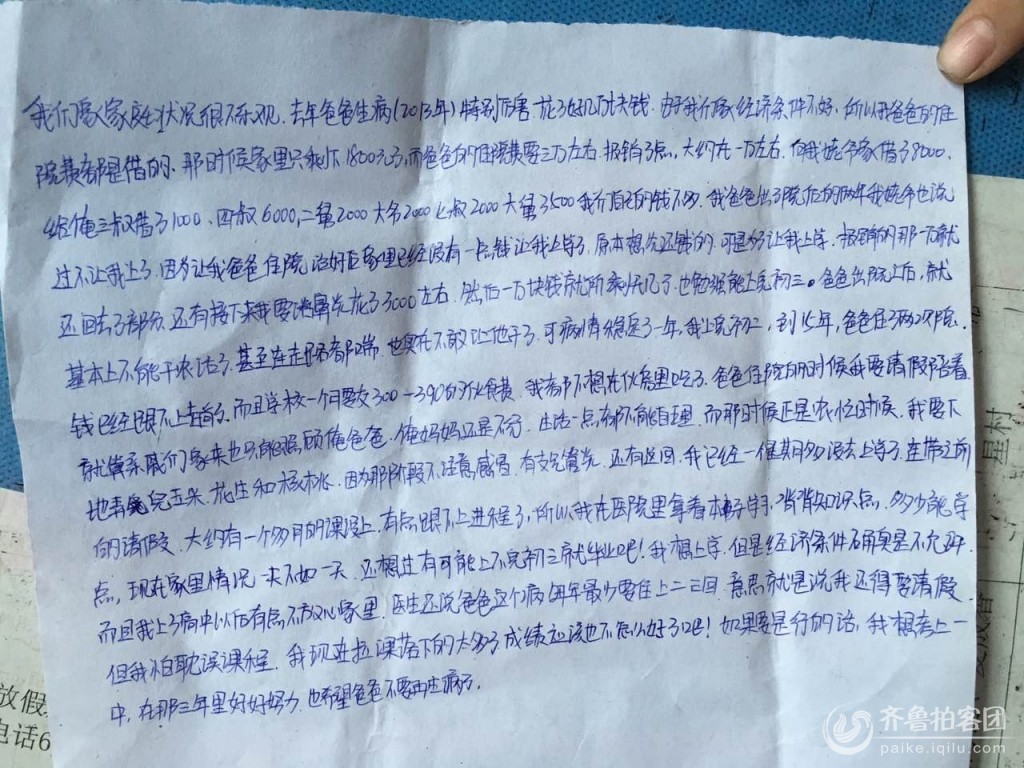 我们家家庭状况很不乐观，去年爸爸生病(2013年)特别厉害。花了好几万块钱。由于我们家经济条件不好，所以我爸爸的住
院费都是借的、那时候家里只剩下1800元了，而爸爸的住院费要三万左右。报销了点，大约在一万左右。向我姥爷家借了8000，
给俺三叔借了1000、四叔6000，二舅2000 大爷2000 七叔2000 大舅3500 我爸爸出了院后的两年我姥爷也说
过不让我上了。因为让我爸爸住院治好后家里已经没有一点钱让我上学了，原本想先还钱的，可是为了让我上学，报销的那一万就
还回去了部分，还有接下来我要花了3000左右。然后一万块钱就所剩无几了，也勉强能上完初三。爸爸出院后，就
基本上不能干农活了，甚至连走路都喘，也实在不敢让他干了，可病情稳定了一年，我上完初二，到15年，爸爸住了两次院。
钱已经跟不上趟了，而且学校一个月要交300-390的伙食费 我都不想在伙房里吃了。爸爸住院的时候我要请假陪着，
家来也只能照顾俺爸爸，俺妈妈还是不行，生活一点都不能自理，而那时候正是农忙时候，我要下
地去掰完玉米，花生和核桃，因为那阶段不注意感冒，有支气管炎，我已经一个星期多没去上学了，连带之前
的请假，大约有一个多月的课没上，有点跟不上进程了，所以我在医院里拿着本子学习，背背知识点，多多少少能学
点，现在家里情况一天不如一天，还想过有可能上不完初三就毕业吧！我想上学，但是经济条件确实是不允许，
而且我上了高中以后有点不放心家里，医生还说爸爸这个病每年最少要住上二三回，意思就是说我还得要请假，
但我怕耽误课程，我现在拉课落下的太多了成绩应该也不怎么好了吧！如果要是行的话，我想考上一
中，在那三年里好好努力，也希望爸爸不要再生病了。
放假
电话6
里村
齐鲁拍客团
paike.iqilu.com